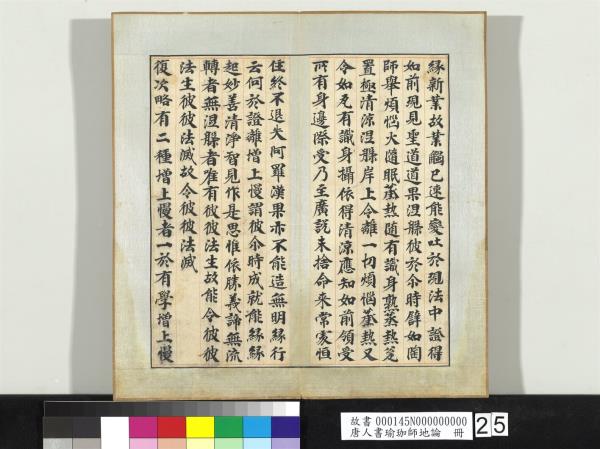 緣新業故業觸已速能變吐於現法中證得
如前現見聖道道果涅槃彼於尒時譬如陶
師舉煩惱大隨眠蒸熱隨有識身熟蒸熱瓮
置極清涼涅槃岸上令離一切煩惱蒸熱又
令如瓦有識身攝依得清涼應知如前領受
所有身邊際受乃至廣說未捨命來常家恒
住終不退失阿羅漢果亦不能造無明緣行
云何於證離增上慢謂彼尒時成就能緣緣
起妙善清淨智見作是思惟依勝義諦無流
轉者無涅槃者唯有彼彼法生故能令彼彼
法生彼彼法滅故令彼彼法滅
復次略有二種增上慢者一於有學增上慢
故書 000145N000000000
唐人書瑜珈師地論 冊
25